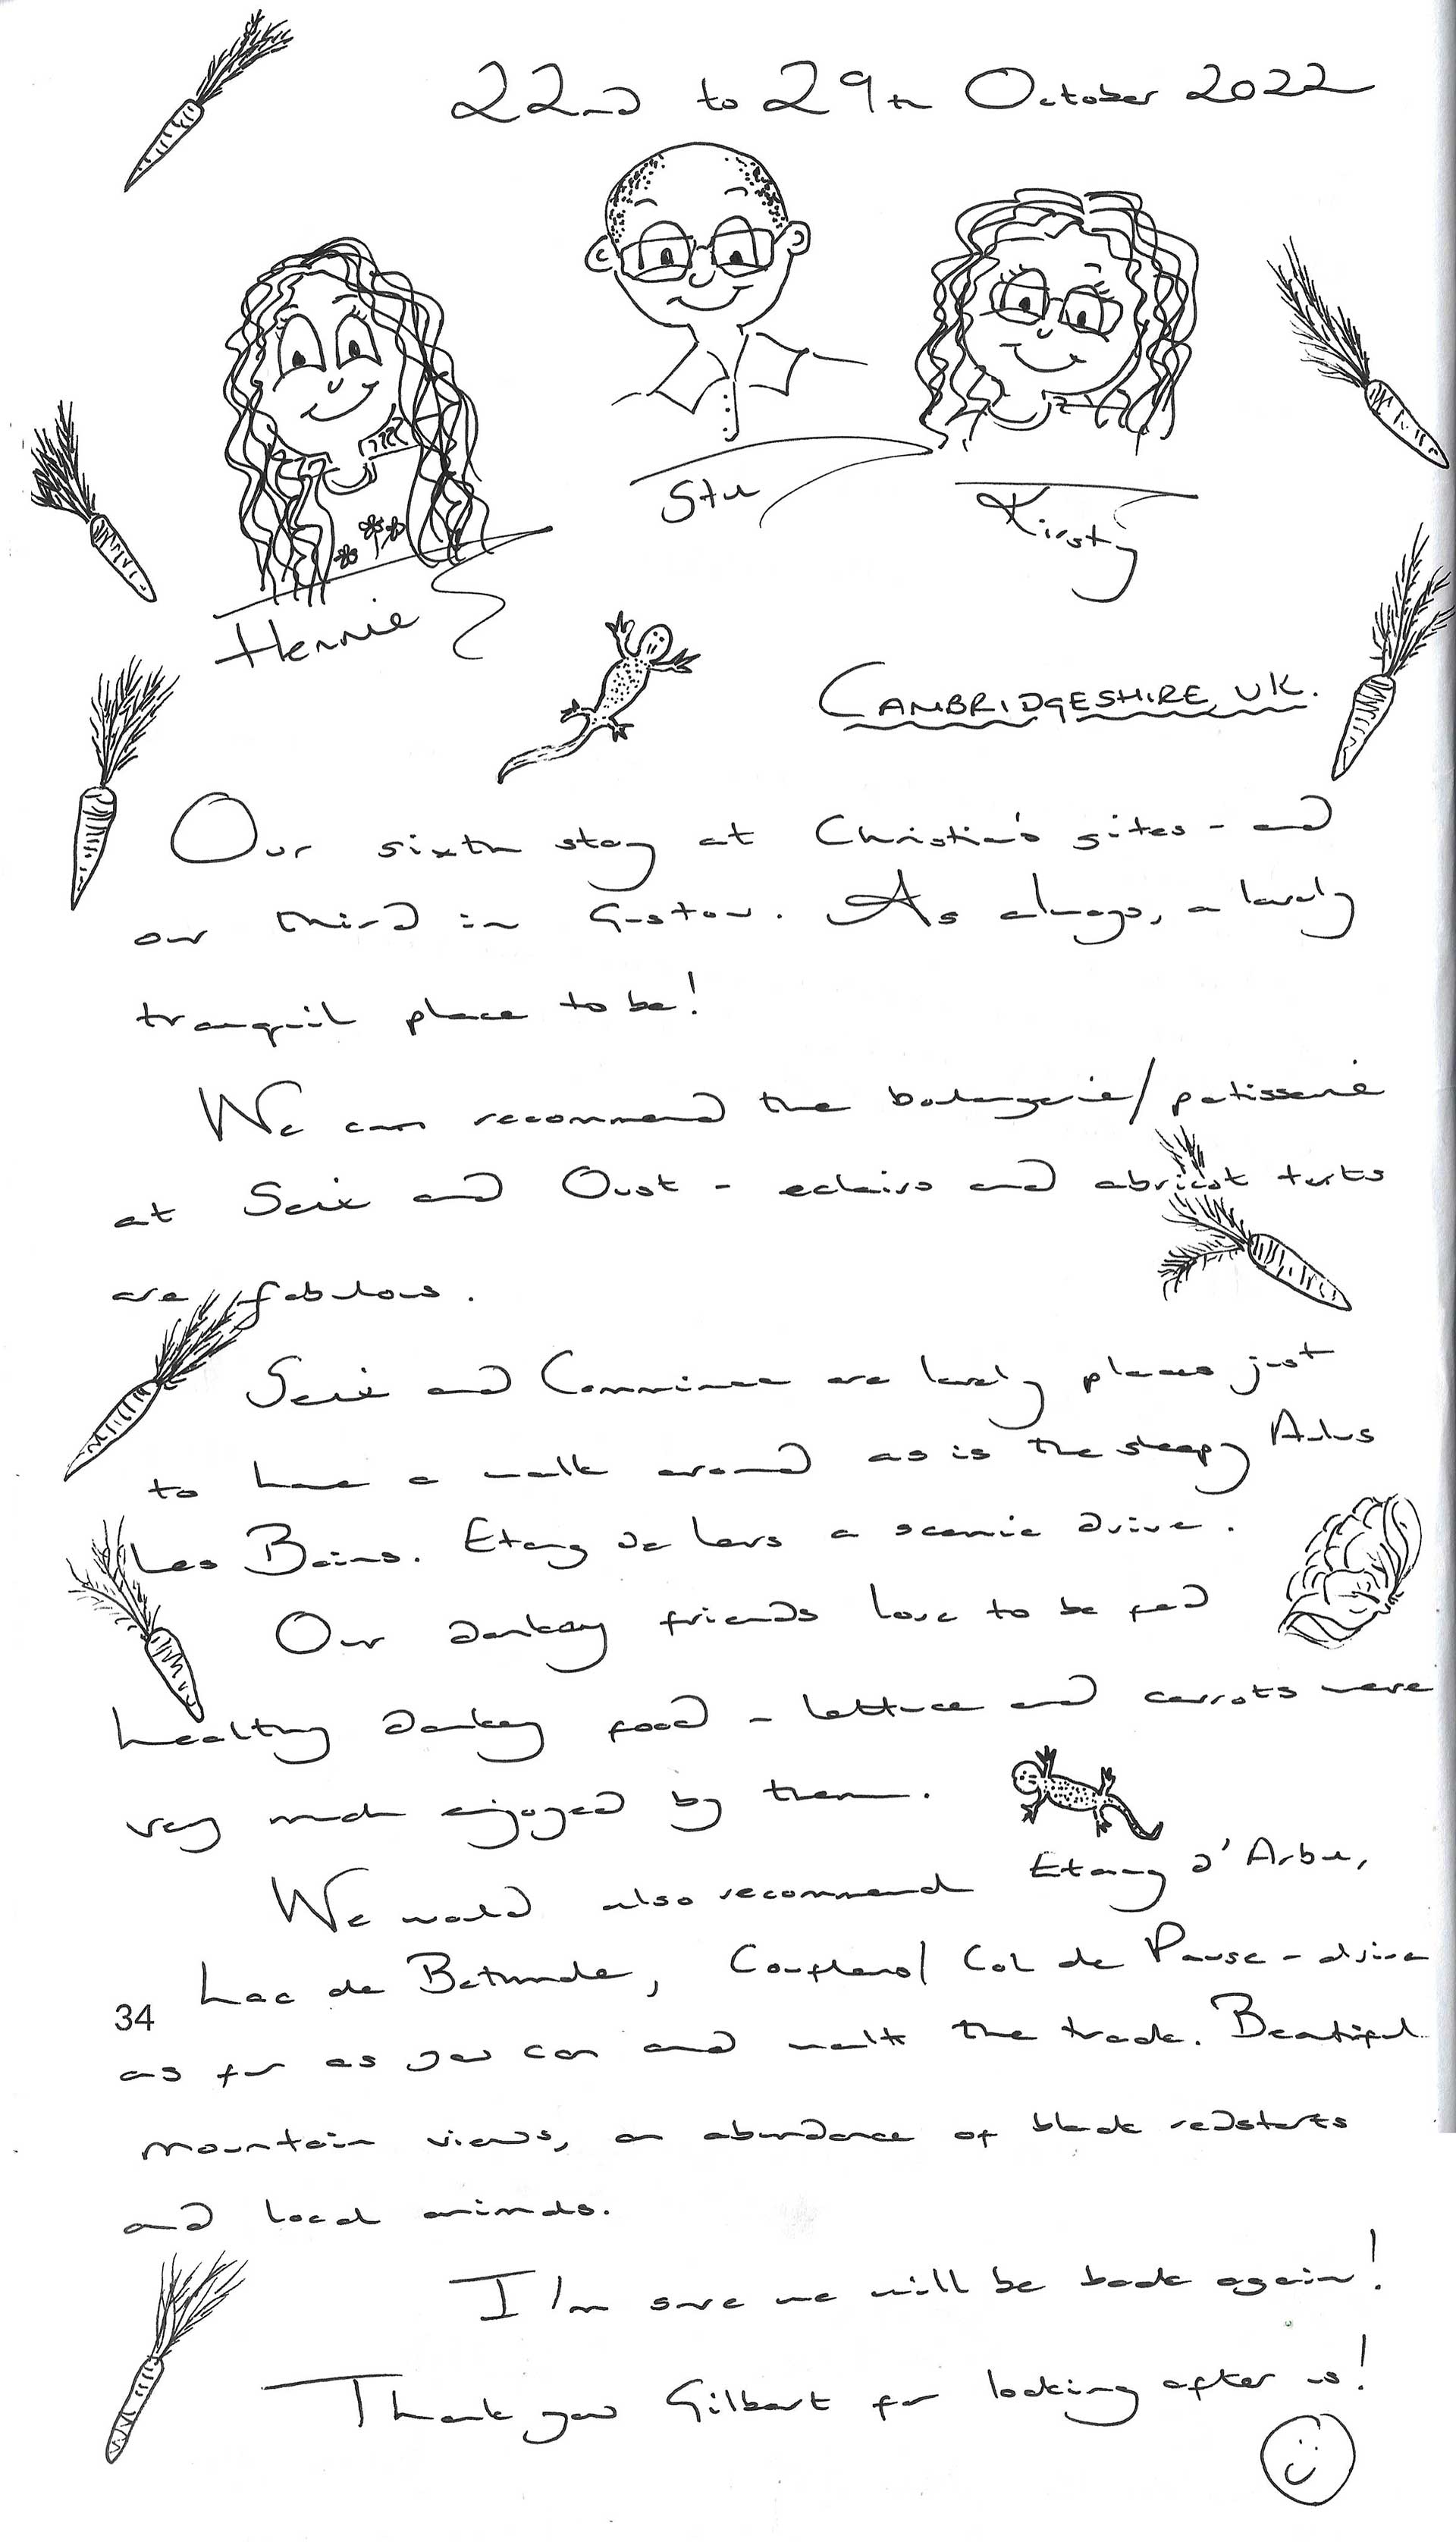 22nd to 29th October 2022
Stu
Kirsty
Hennie
CAMBRIDGESHIRE, UK.
Our sixth stay at Christine's gites - and
our third in Gaston. As always, a lovely
tranquil place to be!
We can recommend the boulangerie/patisserie
at Seix and Oust - eclairs and abricot tarts
are fabulous.
Seix and Comminac are lovely places just
to have a walk around as is the sleepy Aulus
Les Bains. Etang de Lers a scenic drive.
Our donkey friends love to be fed
healthy donkey food - lettuce and carrots were
very much enjoyed by them.
We would also recommend Etang d'Arbu,
Lac de Bethmale, Couflens/ Col de Pause - drive
34
as far as you can and walk the track. Beautiful
mountain views, an abundance of black redstarts
and local animals.
I'm sure we will be back again!
Thank you Gilbert for looking after us!